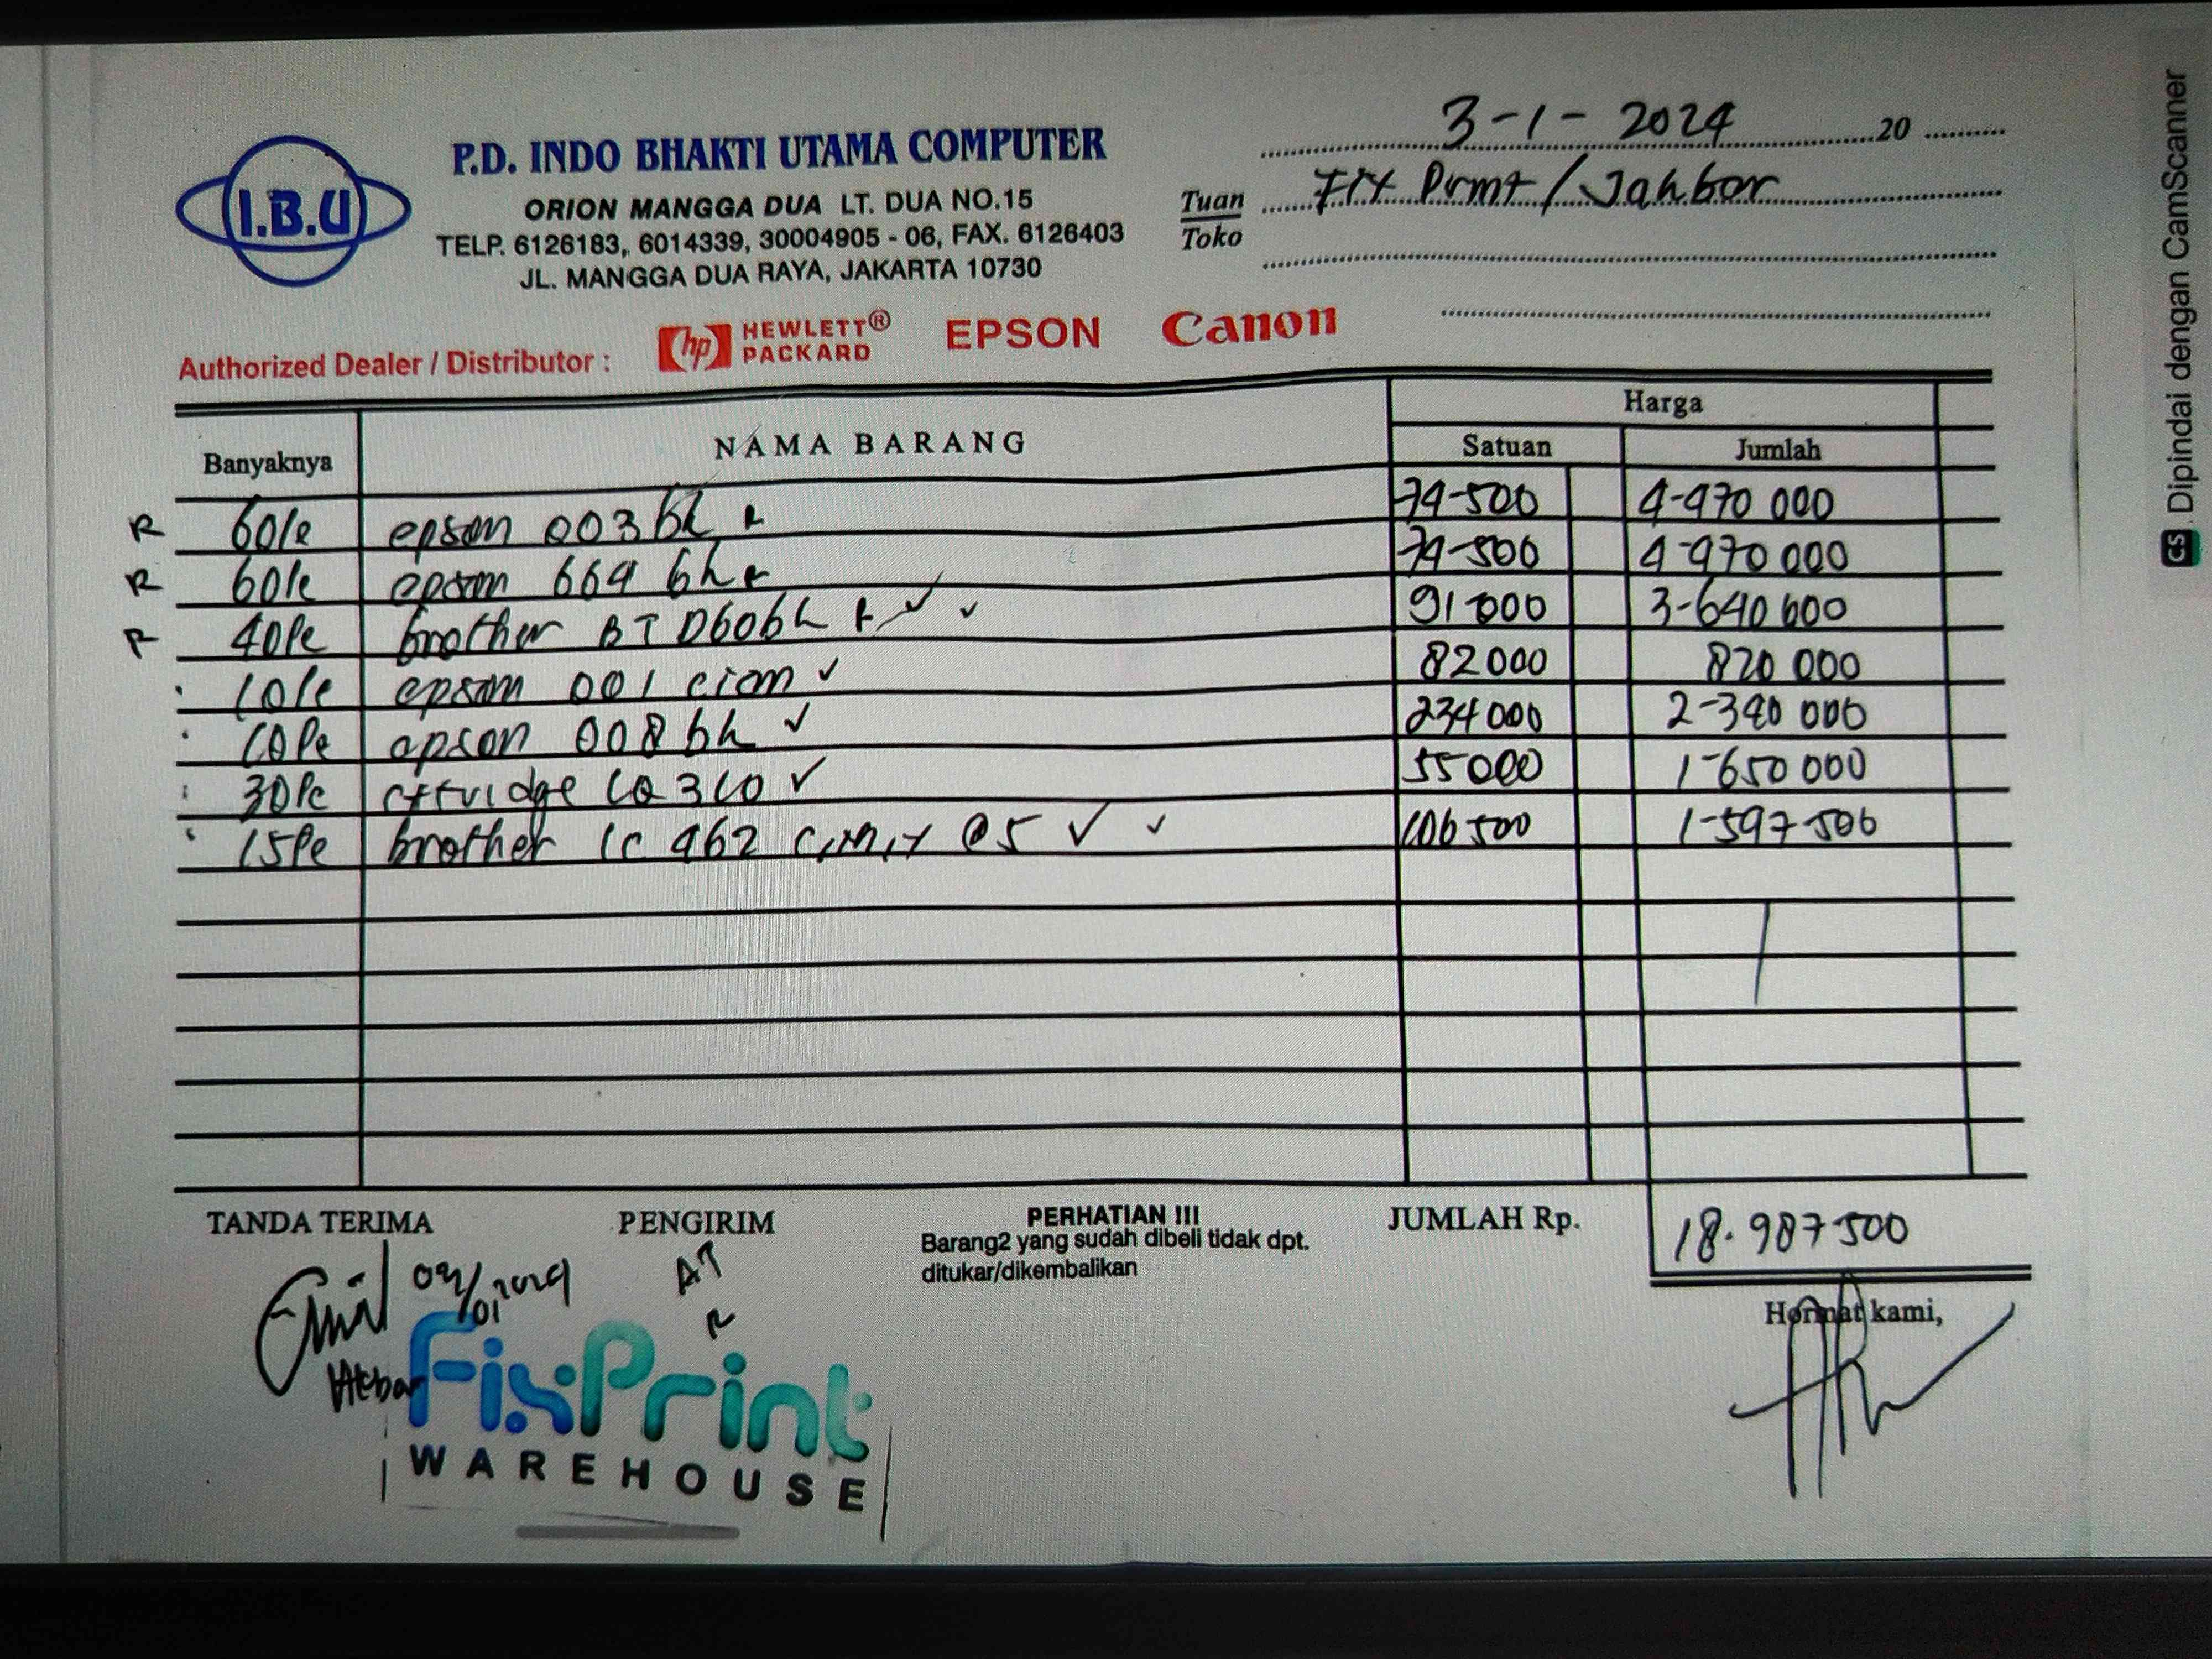 3-1-2024 20
I.B.U
P.D. INDO BHAKTI UTAMA COMPUTER
ORION MANGGA DUA LT. DUA NO.15
TELP. 6126183, 6014339, 30004905 - 06, FAX. 6126403
JL. MANGGA DUA RAYA, JAKARTA 10730
Tuan Fix Print / Jakbar
Toko
Authorized Dealer / Distributor : hp HEWLETT® PACKARD EPSON Canon
Banyaknya NAMA BARANG Harga
Satuan Jumlah
R 60pc epson 003 bk R 74-500 4-470 000
R 60pc epson 664 bk R 74-500 4-470 000
R 40pc brother BT D60bk R ✓ ✓ 91000 3-640 000
10pc epson 001 c,m ✓ 82000 820 000
10pc epson 008 bk ✓ 234000 2-340 000
30pc LQ 310 ✓ 55000 1-650 000
15pc brother lc 462 c,m,y @5 ✓ ✓ 106500 1-597-500
TANDA TERIMA PENGIRIM PERHATIAN !!! JUMLAH Rp. 18.987-500
Barang2 yang sudah dibeli tidak dpt.
ditukar/dikembalikan
Hormat kami,
Akbar
FixPrint
WAREHOUSE
CS Dipindai dengan CamScanner